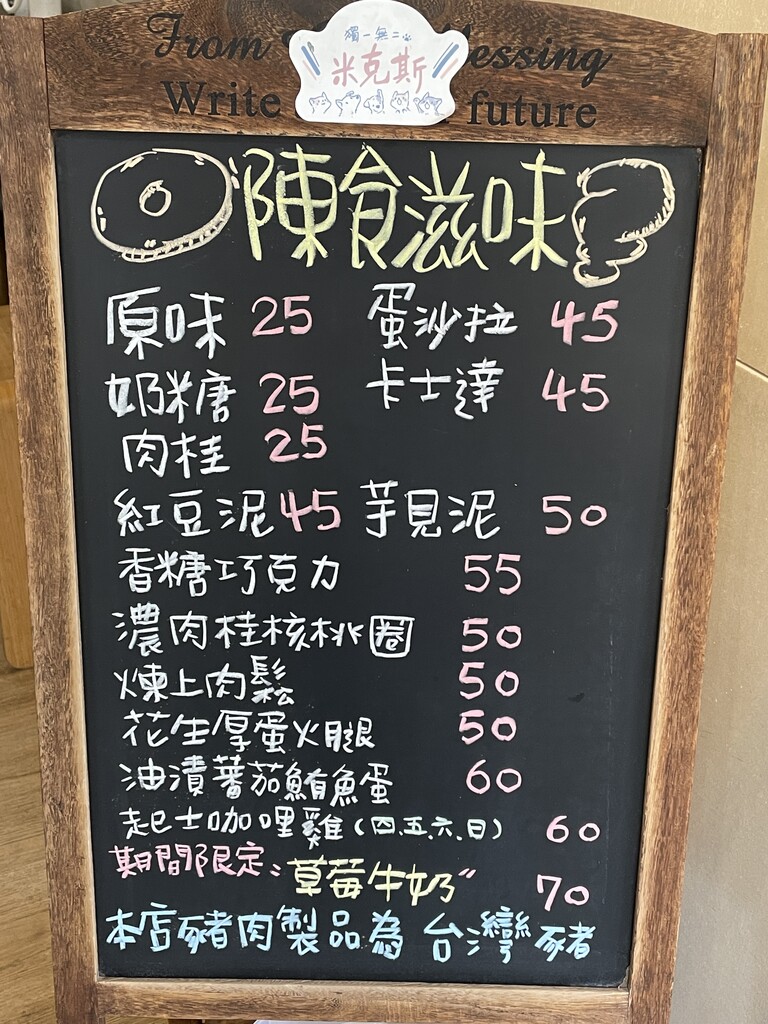 From
essing
獨一無二
米克斯
Write
future
陳食滋味
原味 25 蛋沙拉 45
奶糖 25 卡士達 45
肉桂 25
紅豆泥 45 芋見泥 50
香糖巧克力 55
濃肉桂核桃圈 50
煉上肉鬆 50
花生厚蛋火腿 50
油漬蕃茄鮪魚蛋 60
起士咖哩雞(四.五.六.日) 60
期間限定:草莓牛奶" 70
本店豬肉製品為台灣豬